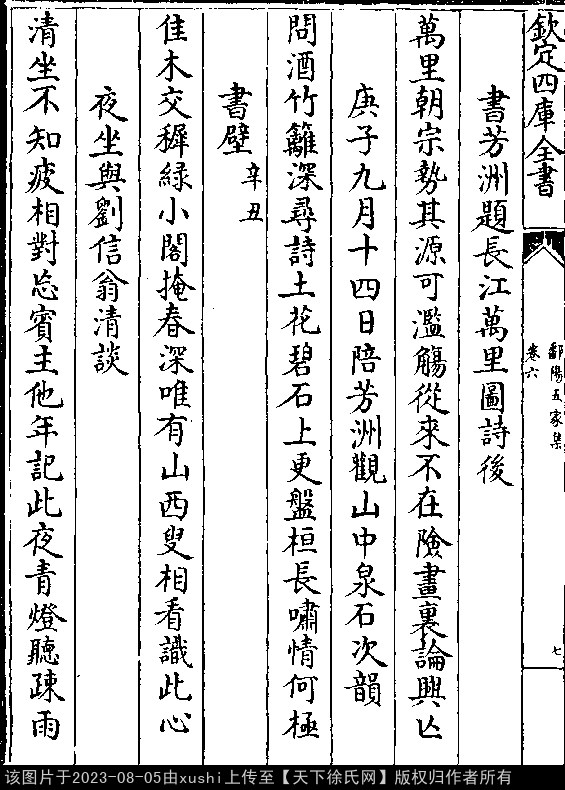 欽定四庫全書
鄱陽五家集
卷六
七
書芳洲題長江萬里圖詩後
萬里朝宗勢其源可濫觴從來不在險畫裏論興亾
庚子九月十四日陪芳洲觀山中泉石次韻
問酒竹籬深尋詩土花碧石上更盤桓長嘯情何極
書壁辛丑
佳木交穉緑小閣掩春深唯有山西叟相看識此心
夜坐與劉信翁清談
清坐不知疲相對忘賓主他年記此夜青燈聽疎雨
该图片于2023-08-05由xushi上传至【天下徐氏网】版权归作者所有